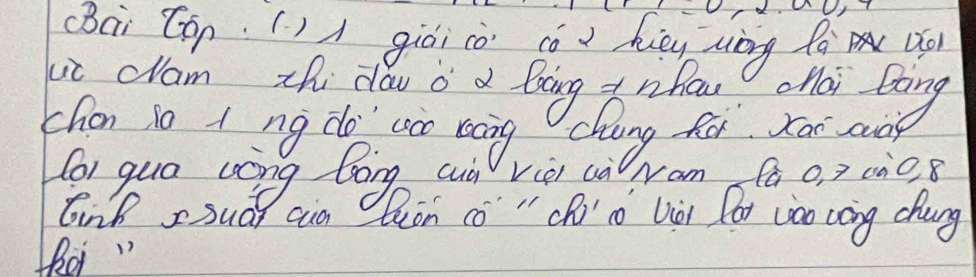 Bài Tập : (.) 1 giải cờ có 2 kiện tướng là Việt
và Nam thi đấu ở 2 bảng ≠ nhau Mỗi bảng
chọn ra 1 ng để vào vòng chung kết. Xác suất
lọt qua vòng bảng của Việt và Nam là 0,7 và 0,8
Tính xsuất của biến cố " chỉ có Việt lọt vào vòng chung
kết "